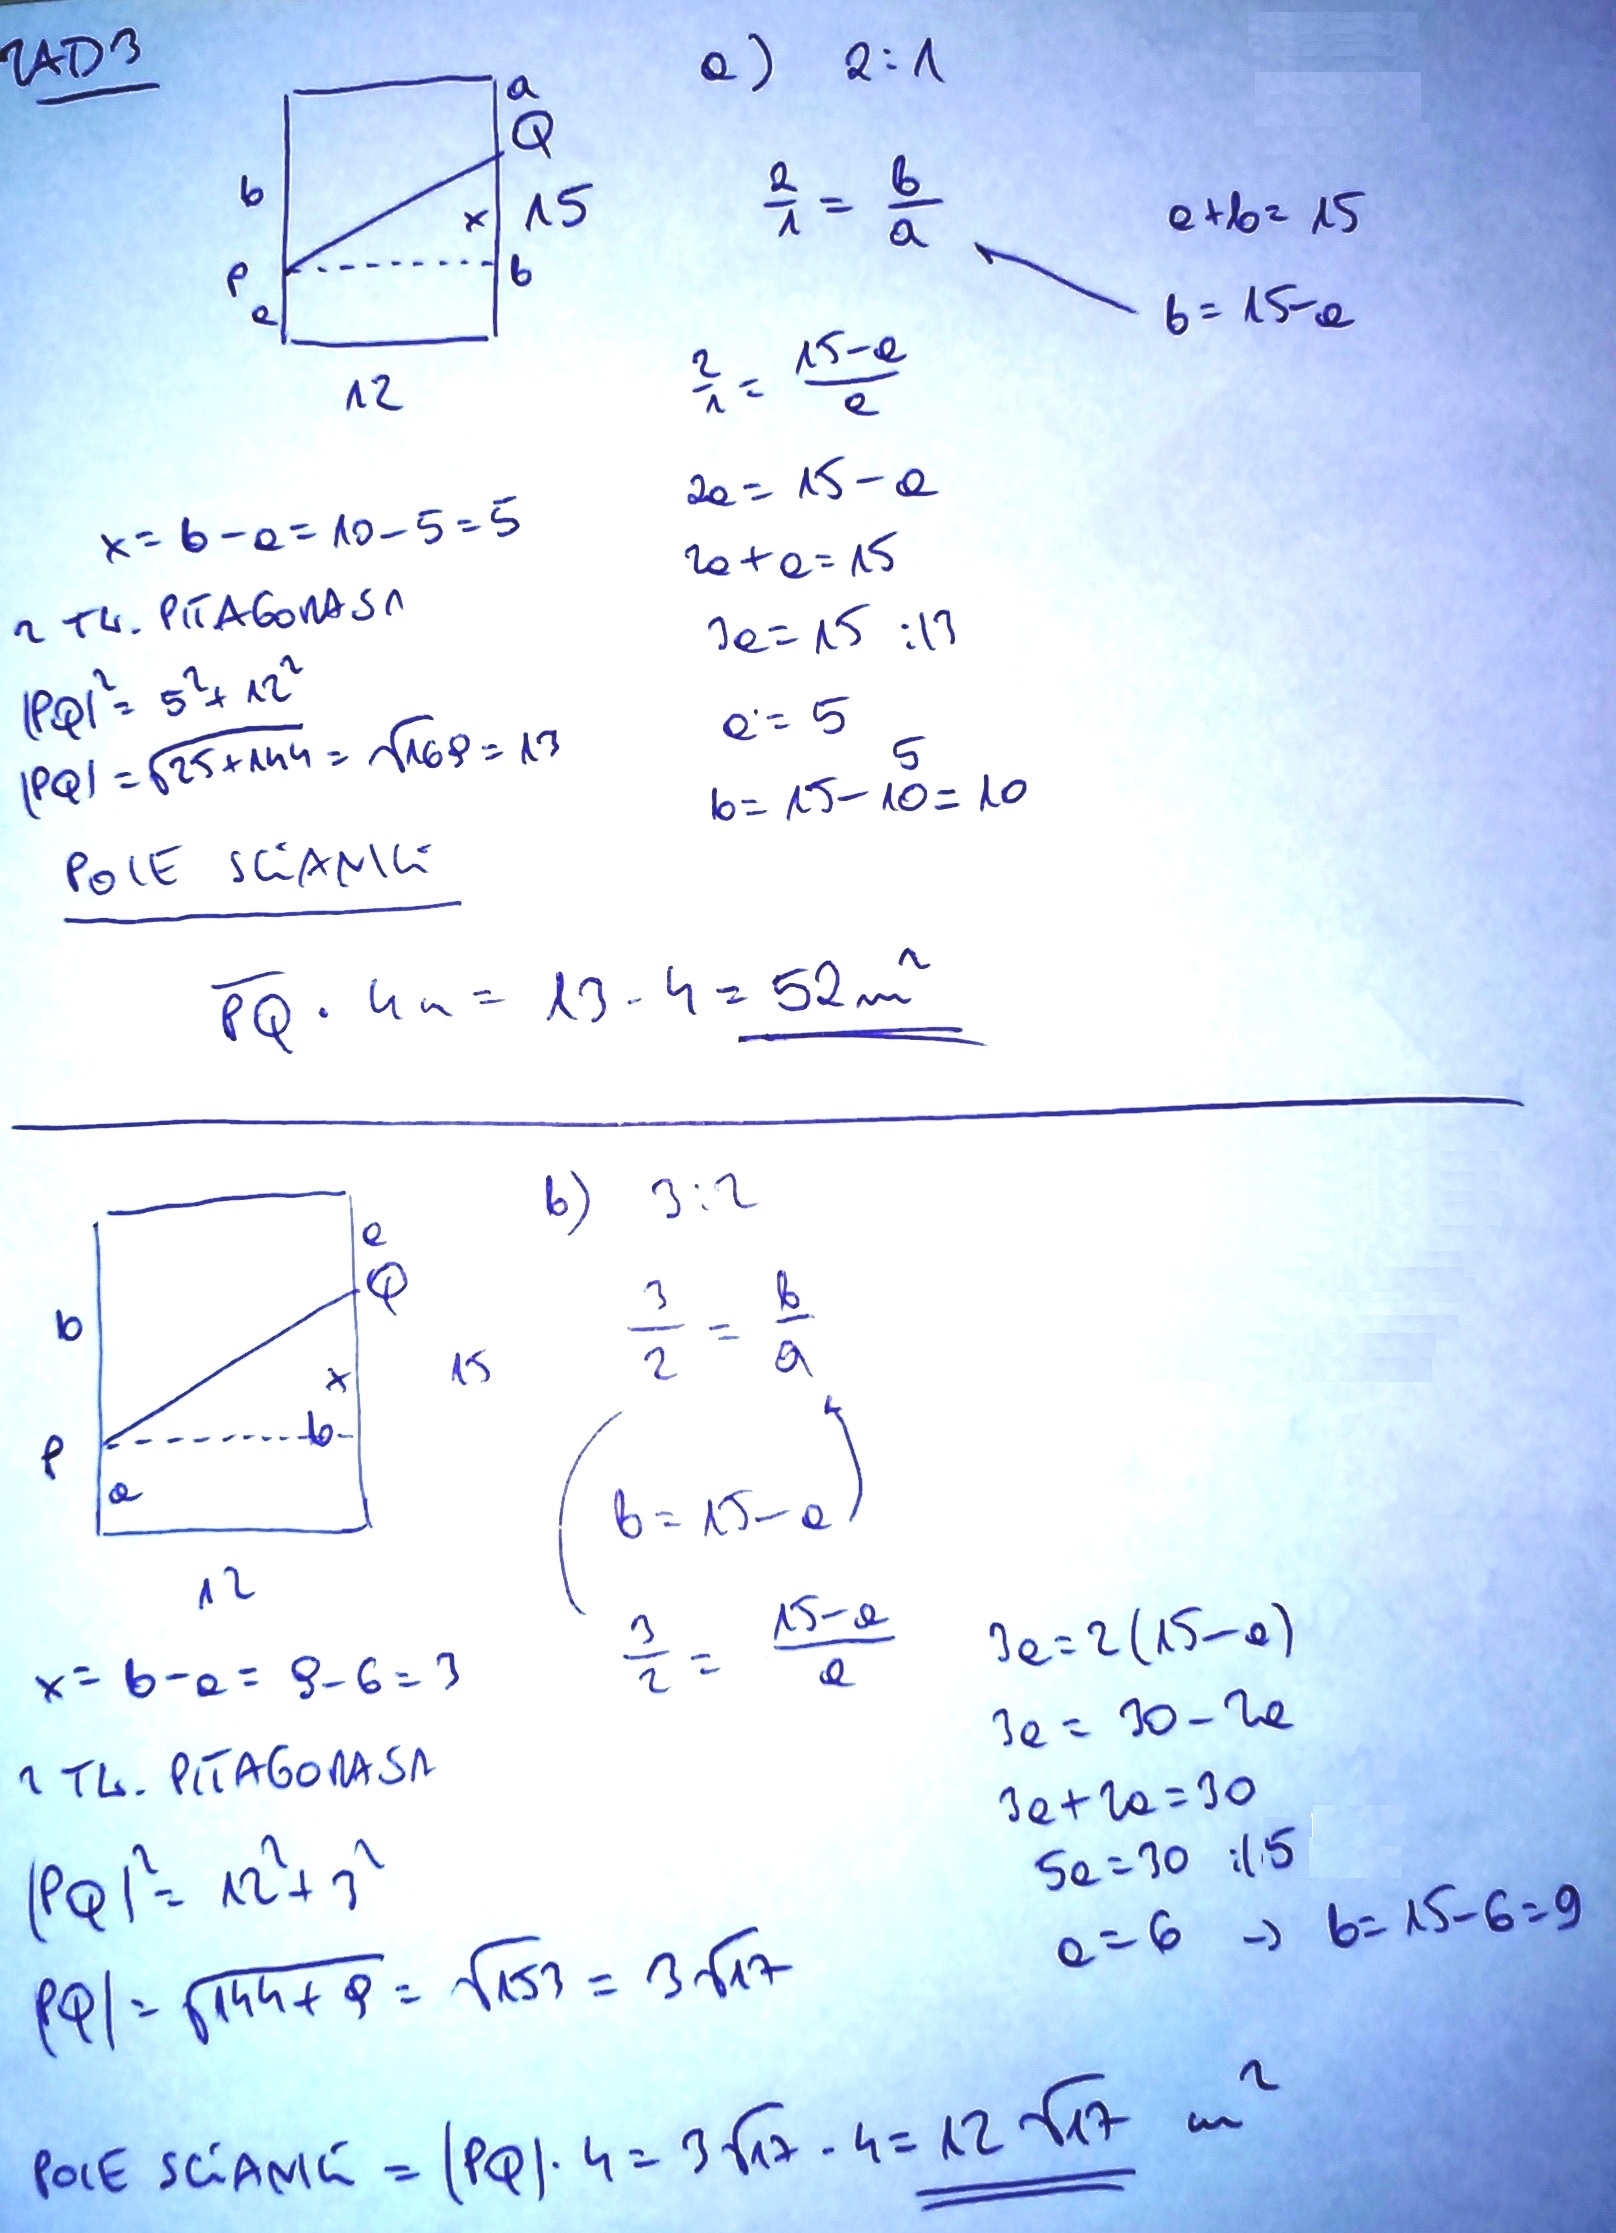 ZAD 3
a) 2:1
a
Q
b
x 15
P
b
a
12
2/1 = b/a
a+b = 15
b = 15-a
2/1 = (15-a)/a
2a = 15-a
2a+a = 15
3a = 15 :/3
a = 5
5
b = 15-10 = 10
x = b-a = 10-5 = 5
z TW. PITAGORASA
|PQ|² = 5²+12²
|PQ| = √25+144 = √169 = 13
POLE SCIANKI
PQ · 4m = 13 · 4 = 52 m²
b) 3:2
a
Q
b
x
15
b
P
a
12
3/2 = b/a
b = 15-a
3/2 = (15-a)/a
3a = 2(15-a)
3a = 30-2a
3a+2a = 30
5a = 30 :/5
a = 6 → b = 15-6 = 9
x = b-a = 9-6 = 3
z TW. PITAGORASA
|PQ|² = 12²+3²
|PQ| = √144+9 = √153 = 3√17
POLE SCIANKI = |PQ| · 4 = 3√17 · 4 = 12√17 m²